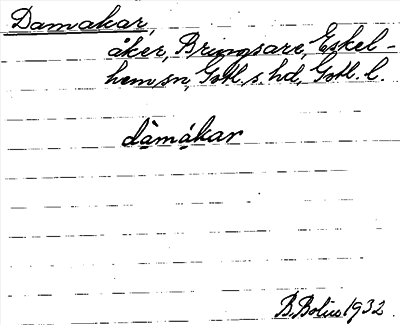 Damakar,
åker, Bringsarve, Eskel-
hem sn, Gotl. s. hd, Gotl. l.
dàmákar
B. Bolin 1932